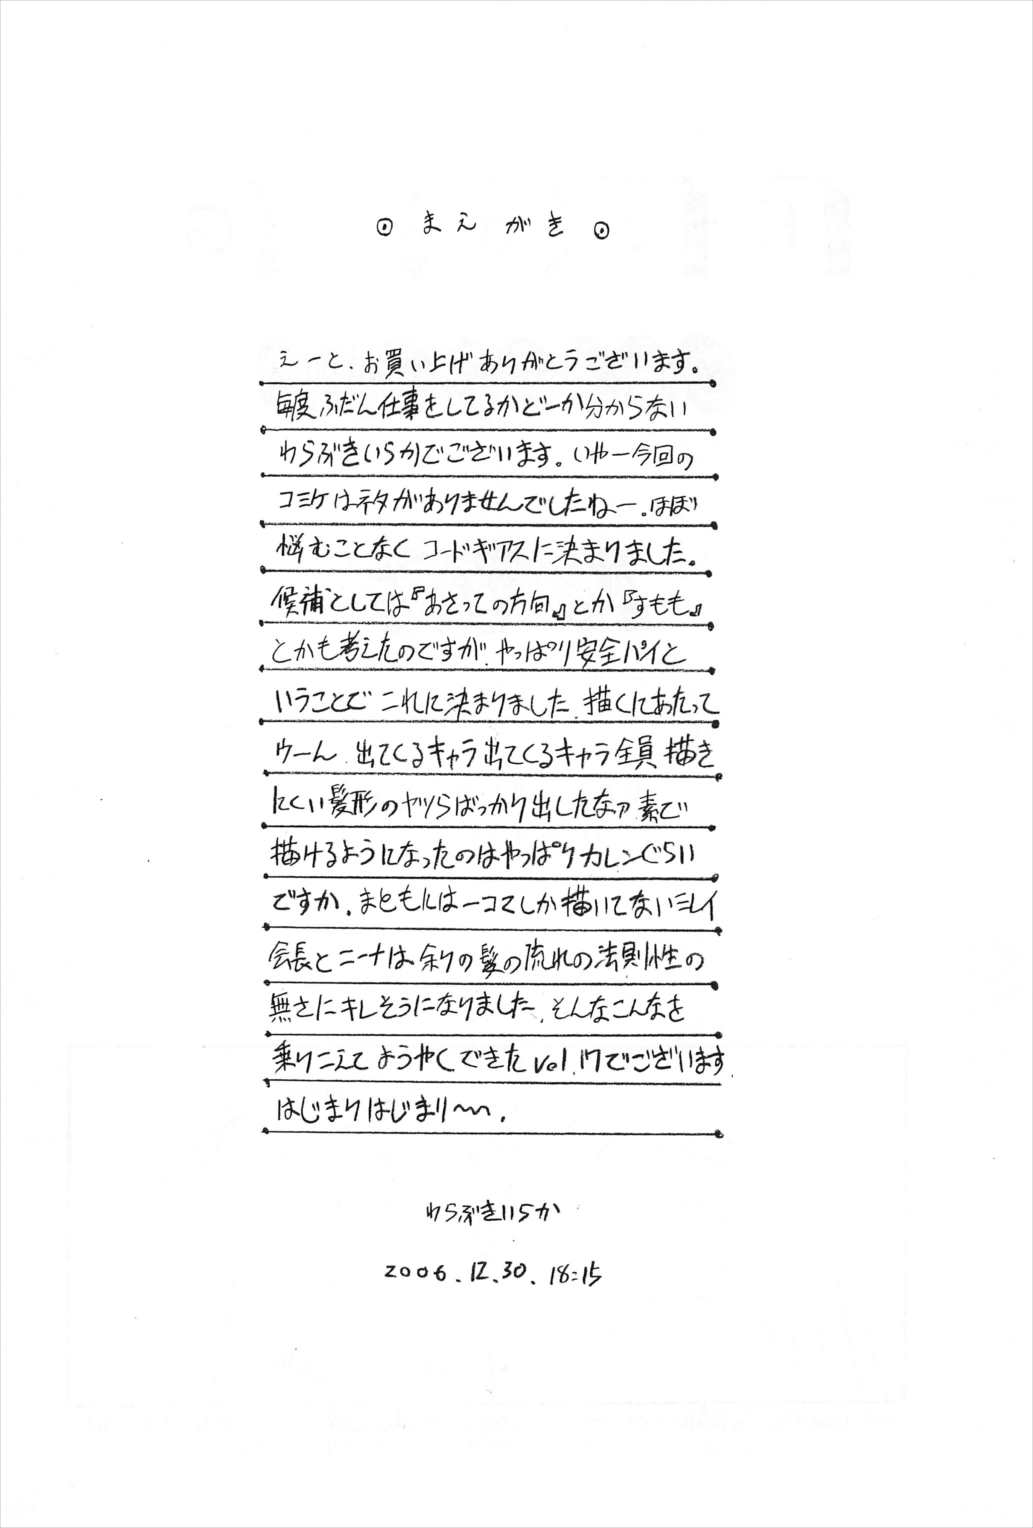 ◎ まえがき ◎
えーと、お買い上げありがとうございます。
毎度ふだん仕事をしてるかどーか分からない
わらぶきいらかでございます。いやー今回の
コミケはネタがありませんでしたねー。ほぼ
悩むことなく コードギアスに決まりました。
候補としては『あさっての方向。』とか『すもも』
とかも考えたのですが、やっぱり安全パイと
いうことで これに決まりました。描くにあたって
ウーん、出てくるキャラ出てくるキャラ全員 描き
にくい髪形のヤツらばっかり出したなァ 素で
描けるようになったのはやっぱりカレンぐらい
ですか。まともには一コマしか描いてないミレイ
会長とニーナは 余りの髪の流れの法則性の
無さにキレそうになりました。そんなこんなを
乗りこえて ようやくできたvol.17でございます。
はじまりはじまり〜〜。
わらぶきいらか
2006.12.30. 18:15